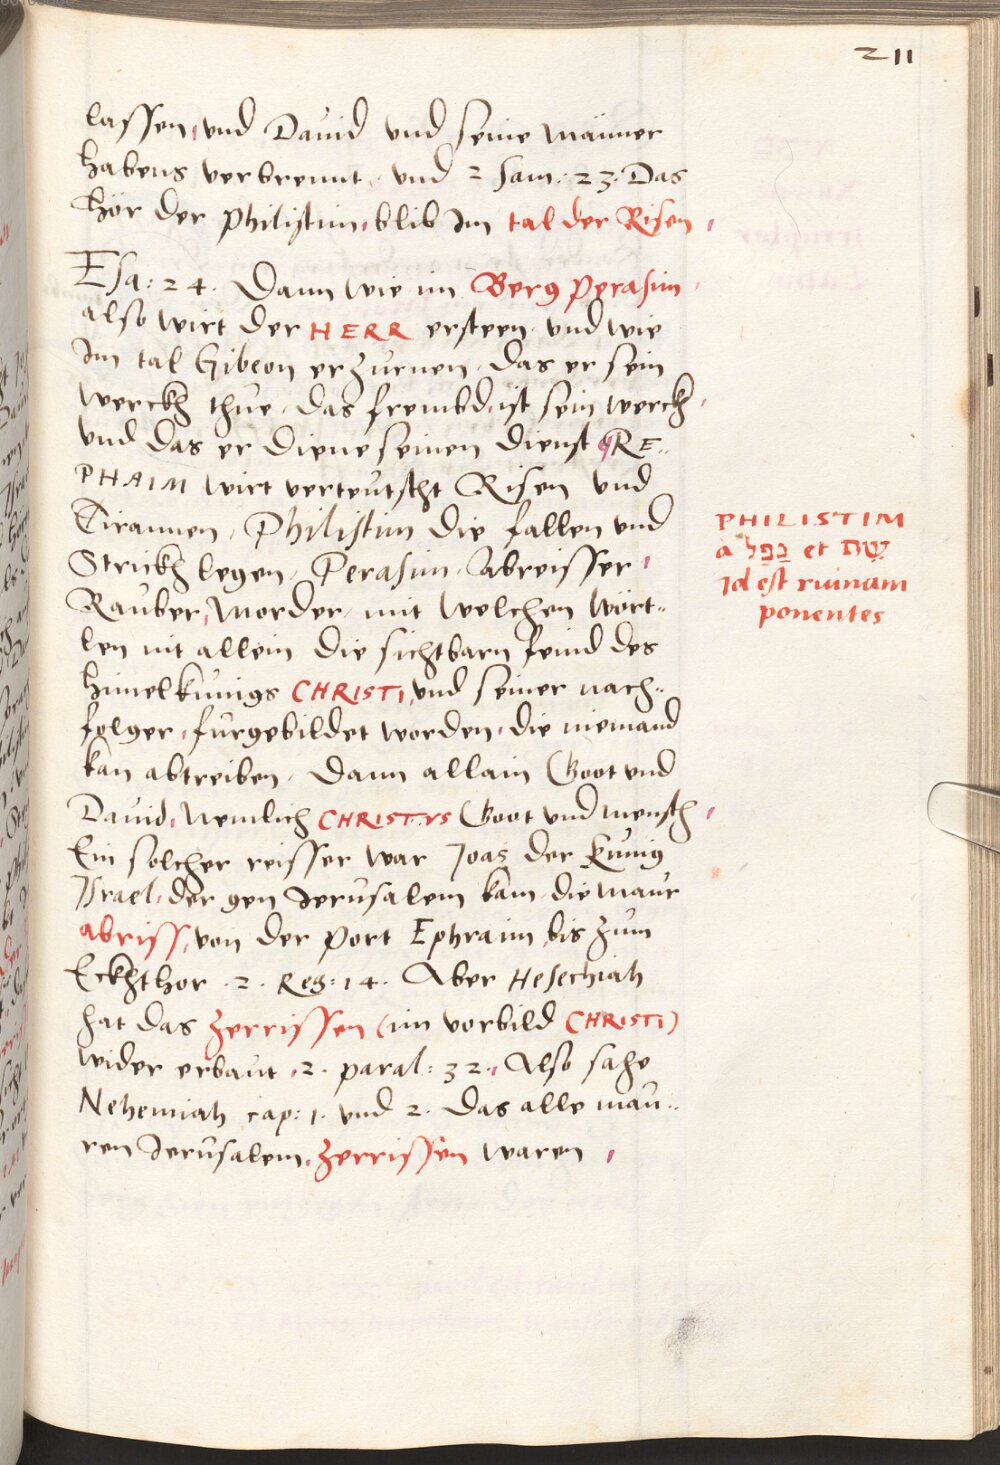 211
lassen, und Dauid und seine Männer
habens verbrennt, und 2 Sam: 23. Das
hör der Philistim, blib Im tal der Risen,
Esa: 24. Dann wie im Berg Perasim,
also wirt der HERR ersteen, und wie
Im tal Gibeon erzurnen, das er sein
werckh thue, das frembd, ist sein werch,
und das er diene seinen dienst, RE-
PHAIM wirt verteutscht Risen und
Tirannen, Philistim die fallen und
Strickh legen, Perasim, Abreisser,
Rauber, Morder, mit welchen wört-
len nit allein die sichtbarn feind des
himelkunigs CHRISTI, und seiner nach-
folger, furgebildet worden, die niemand
kan abtreiben, dann allain Goot und
Dauid, Nemlich CHRISTVS Goot und mensch,
Ein solcher reisser war Joas der kunig
Israel, der gen Jerusalem kam, die maur
abriss, von der port Ephraim, bis zum
Eckhthor .2. Reg: 14. Aber Hesechiah
hat das zerrissen (im vorbild CHRISTI)
wider erbaut, 2. paral: 32. Also sahe
Nehemiah cap: 1. und 2. das alle mau-
ren Jerusalem, zerrissen waren,
PHILISTIM
a נפל et שׂת
Id est ruinam
ponentes